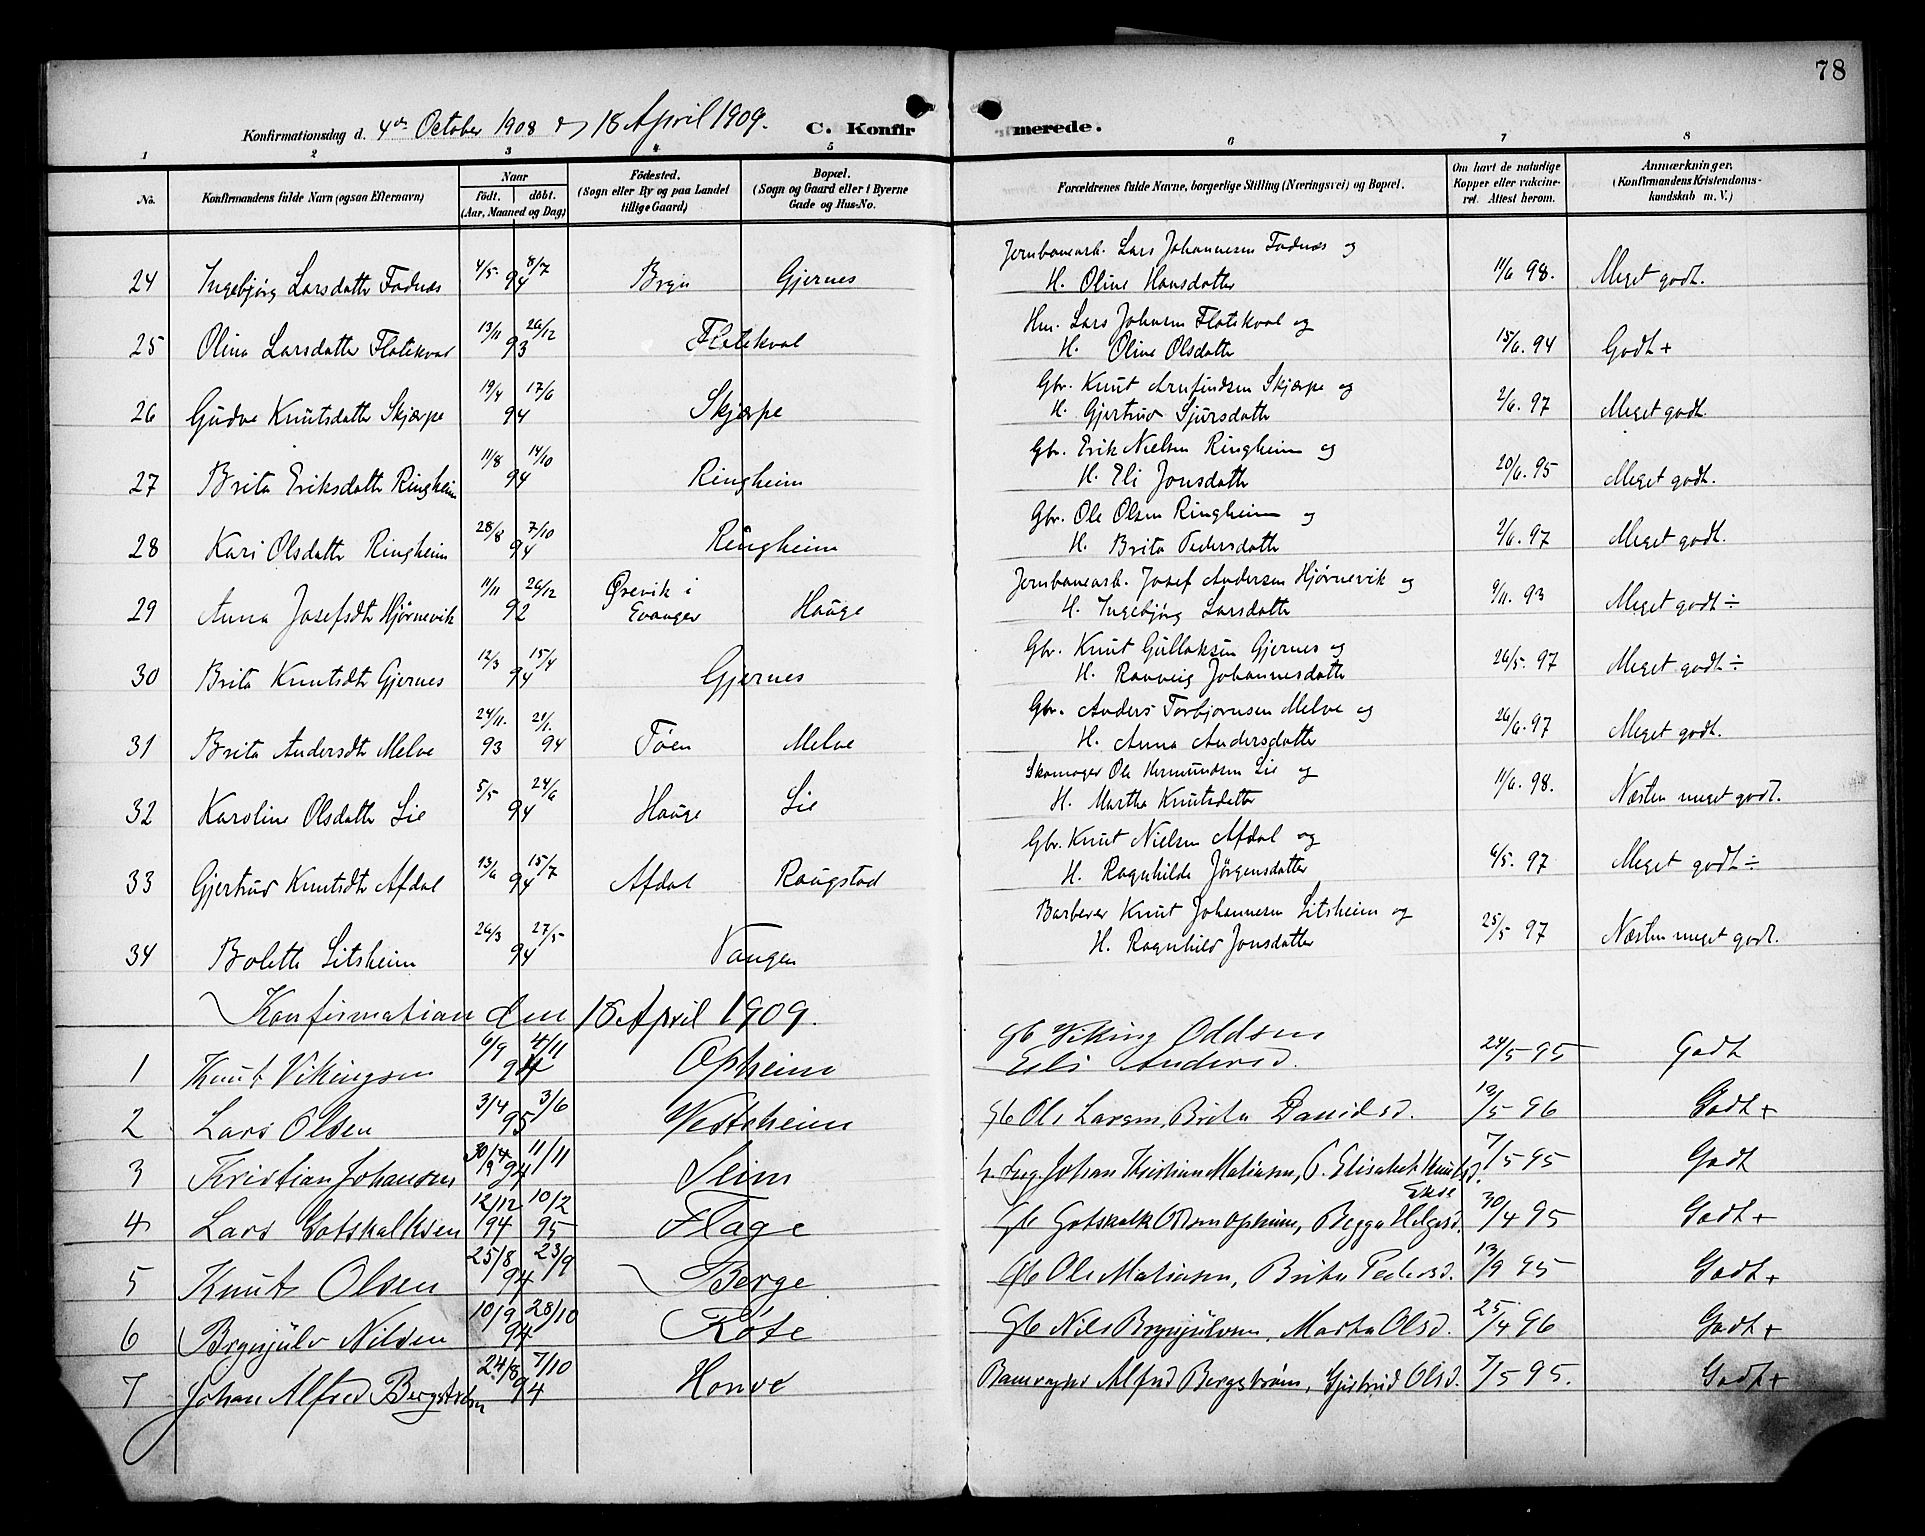 78
Konfirmationsdag d. 4de October 1908 og 18 April 1909. C. Konfirmerede.
1 2 3 4 5 6 7 8
No. Konfirmandens fulde Navn (ogsaa Efternavn) Naar født. døbt. (Aar, Maaned og Dag) Fødested. (Sogn eller By og paa Landet tillige Gaard) Bopæl. (Sogn og Gaard eller i Byerne Gade og Hus-No. Forældrenes fulde Navne, borgerlige Stilling (Næringsvei) og Bopæl. Om havt de naturlige Kopper eller vakcineret. Attest herom. Anmærkninger. (Konfirmandens Kristendomskundskab m. V.)
24 Ingebjörg Larsdatter Fadnæs 4/5. 8/7 94 Bryn Gjernes Jernbanearb. Lars Johannesen Fadnæs og H. Oline Hansdatter 11/6 98. Meget godt.
25 Olina Larsdatter Flatekval 13/11 26/12 93 Flatekval Hm. Lars Johnsen Flatekval og H. Oline Olsdatter 15/6. 94 Godt +
26 Gudve Knutsdatter Skjærpe 19/4 17/6 94 Skjærpe Gbr. Knut Arnfindsen Skjærpe og H. Gjertrud Sjursdatter 2/6. 97 Meget godt.
27 Brita Eriksdatter Ringheim 11/8 14/10 94 Ringheim Gbr. Erik Nielsen Ringheim og H. Eli Jonsdatter 20/6. 95 Meget godt.
28 Kari Olsdatter Ringheim 28/8 7/10 94 Ringheim Gbr. Ole Olsen Ringheim og H. Brita Pedersdatter 2/6. 97 Meget godt.
29 Anna Josefsdtr Hjørnevik 11/11 26/12 92 Ørevik i Evanger Hauge Jernbanearb. Josef Andersen Hjørnevik og H. Ingebjörg Larsdatter 9/11. 93 Meget godt ÷
30 Brita Knutsdtr Gjernes 12/3 15/4 94 Gjernes Gbr. Knut Gullaksen Gjernes og H. Ranveig Johannesdatter 26/5. 97 Meget godt ÷
31 Brita Andersdtr Melve 24/11. 93 21/1. 94 Töen Melve Gbr. Anders Torbjørnsen Melve og H. Anna Andersdatter 26/6. 97 Meget godt.
32 Karoline Olsdatter Lie 5/5 24/6 94 Hauge Lie Skomager Ole Hermundsen Lie og H. Martha Knutsdatter 11/6. 98. Næsten meget godt.
33 Gjertrud Knutsdtr Afdal 13/6 15/7 94 Afdal Raugstad Gbr. Knut Nielsen Afdal og H. Ragnhilde Jörgensdatter 6/5. 97 Meget godt ÷
34 Bolette Litsheim 26/3 27/5 94 Vangen Barberer Knut Johannesen Litsheim og H. Ragnhild Jonsdatter 25/5 97 Næsten meget godt.
Konfirmation den 18 April 1909.
1 Knut Vikingson 6/9 4/11 94 Opheim Gb Viking Oddsen Eli Andersd. 24/5 95 Godt
2 Lars Olsen 3/4 3/6 95 Vestrheim Gb Ole Larsen, Brita Davidsd. 12/5 96 Godt +
3 Kristian Johansen 30/9 11/11 94 Seim Johan Kristian Matiasen, Elisabet Knutsd. 7/5 95 Godt
4 Lars Gotskalksen 12/12 94 10/2 95 Flage Gb Gotskalk Olsen Opheim, Begga Helgesd. Ekse 30/4 95 Godt +
5 Knut Olsen 25/8 23/9 94 Berge Gb Ole Matiasen, Brita Pedersd. 13/9 95 Godt +
6 Brynjulv Nilsen 10/9 28/10 94 Røte Gb Nils Brynjulvsen, Marta Olsd. 25/4 96 Godt +
7 Johan Alfred Bergstrøm 24/8 7/10 94 Honve Banevogter Alfred Bergstrøm, Gjertrud Olsd. 7/5 95. Godt +